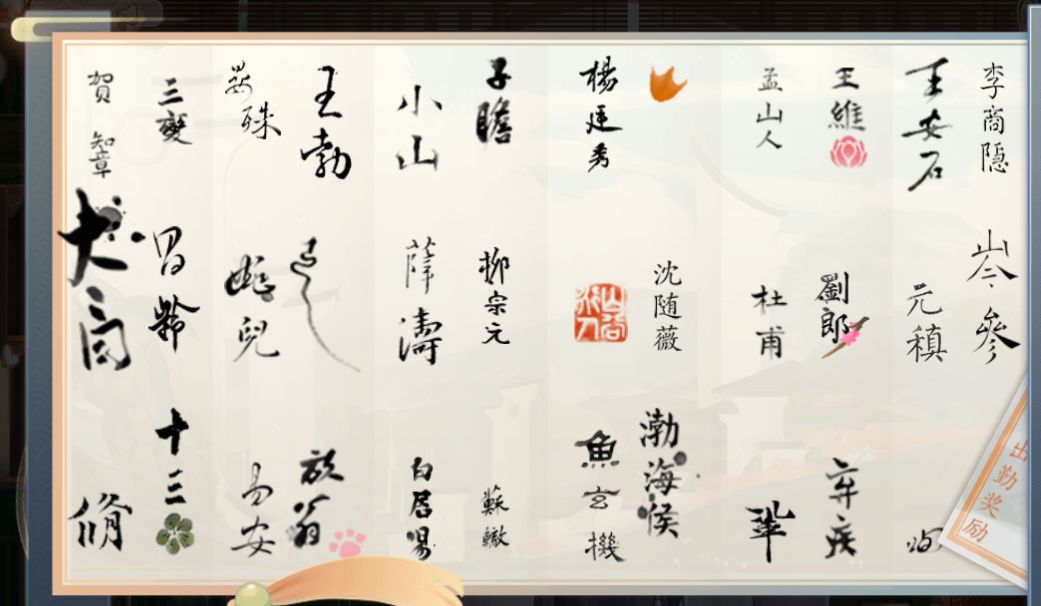 李商隐
岑參
王安石
元稹
王維
劉郎
弃疾
孟山人
杜甫
鞏
沈随薇
渤海侯
楊廷秀
魚玄機
子瞻
柳宗元
蘇轍
小山
薛濤
白居易
王勃
放翁
殊
婉兒
易安
三變
昌齡
十三
賀知章
脩
出勤奖励